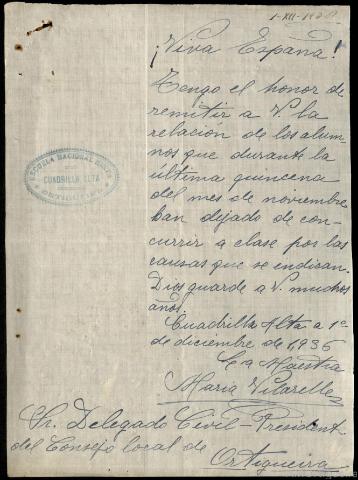 1-XII-1936
¡Viva España!
Tengo el honor de
remitir a V. la
relación de los alum-
nos que durante la
ultima quincena
del mes de noviembre
han dejado de con-
currir a clase por las
causas que se indican.
Dios guarde a V. muchos
años.
Cuadrilla Alta a 1º
de diciembre de 1,936
La Maestra
María Vilarelle
ESCUELA NACIONAL MIXTA
CUADRILLA ALTA
ORTIGUEIRA
Sr. Delegado Civil-President
del Consejo local de
Ortigueira